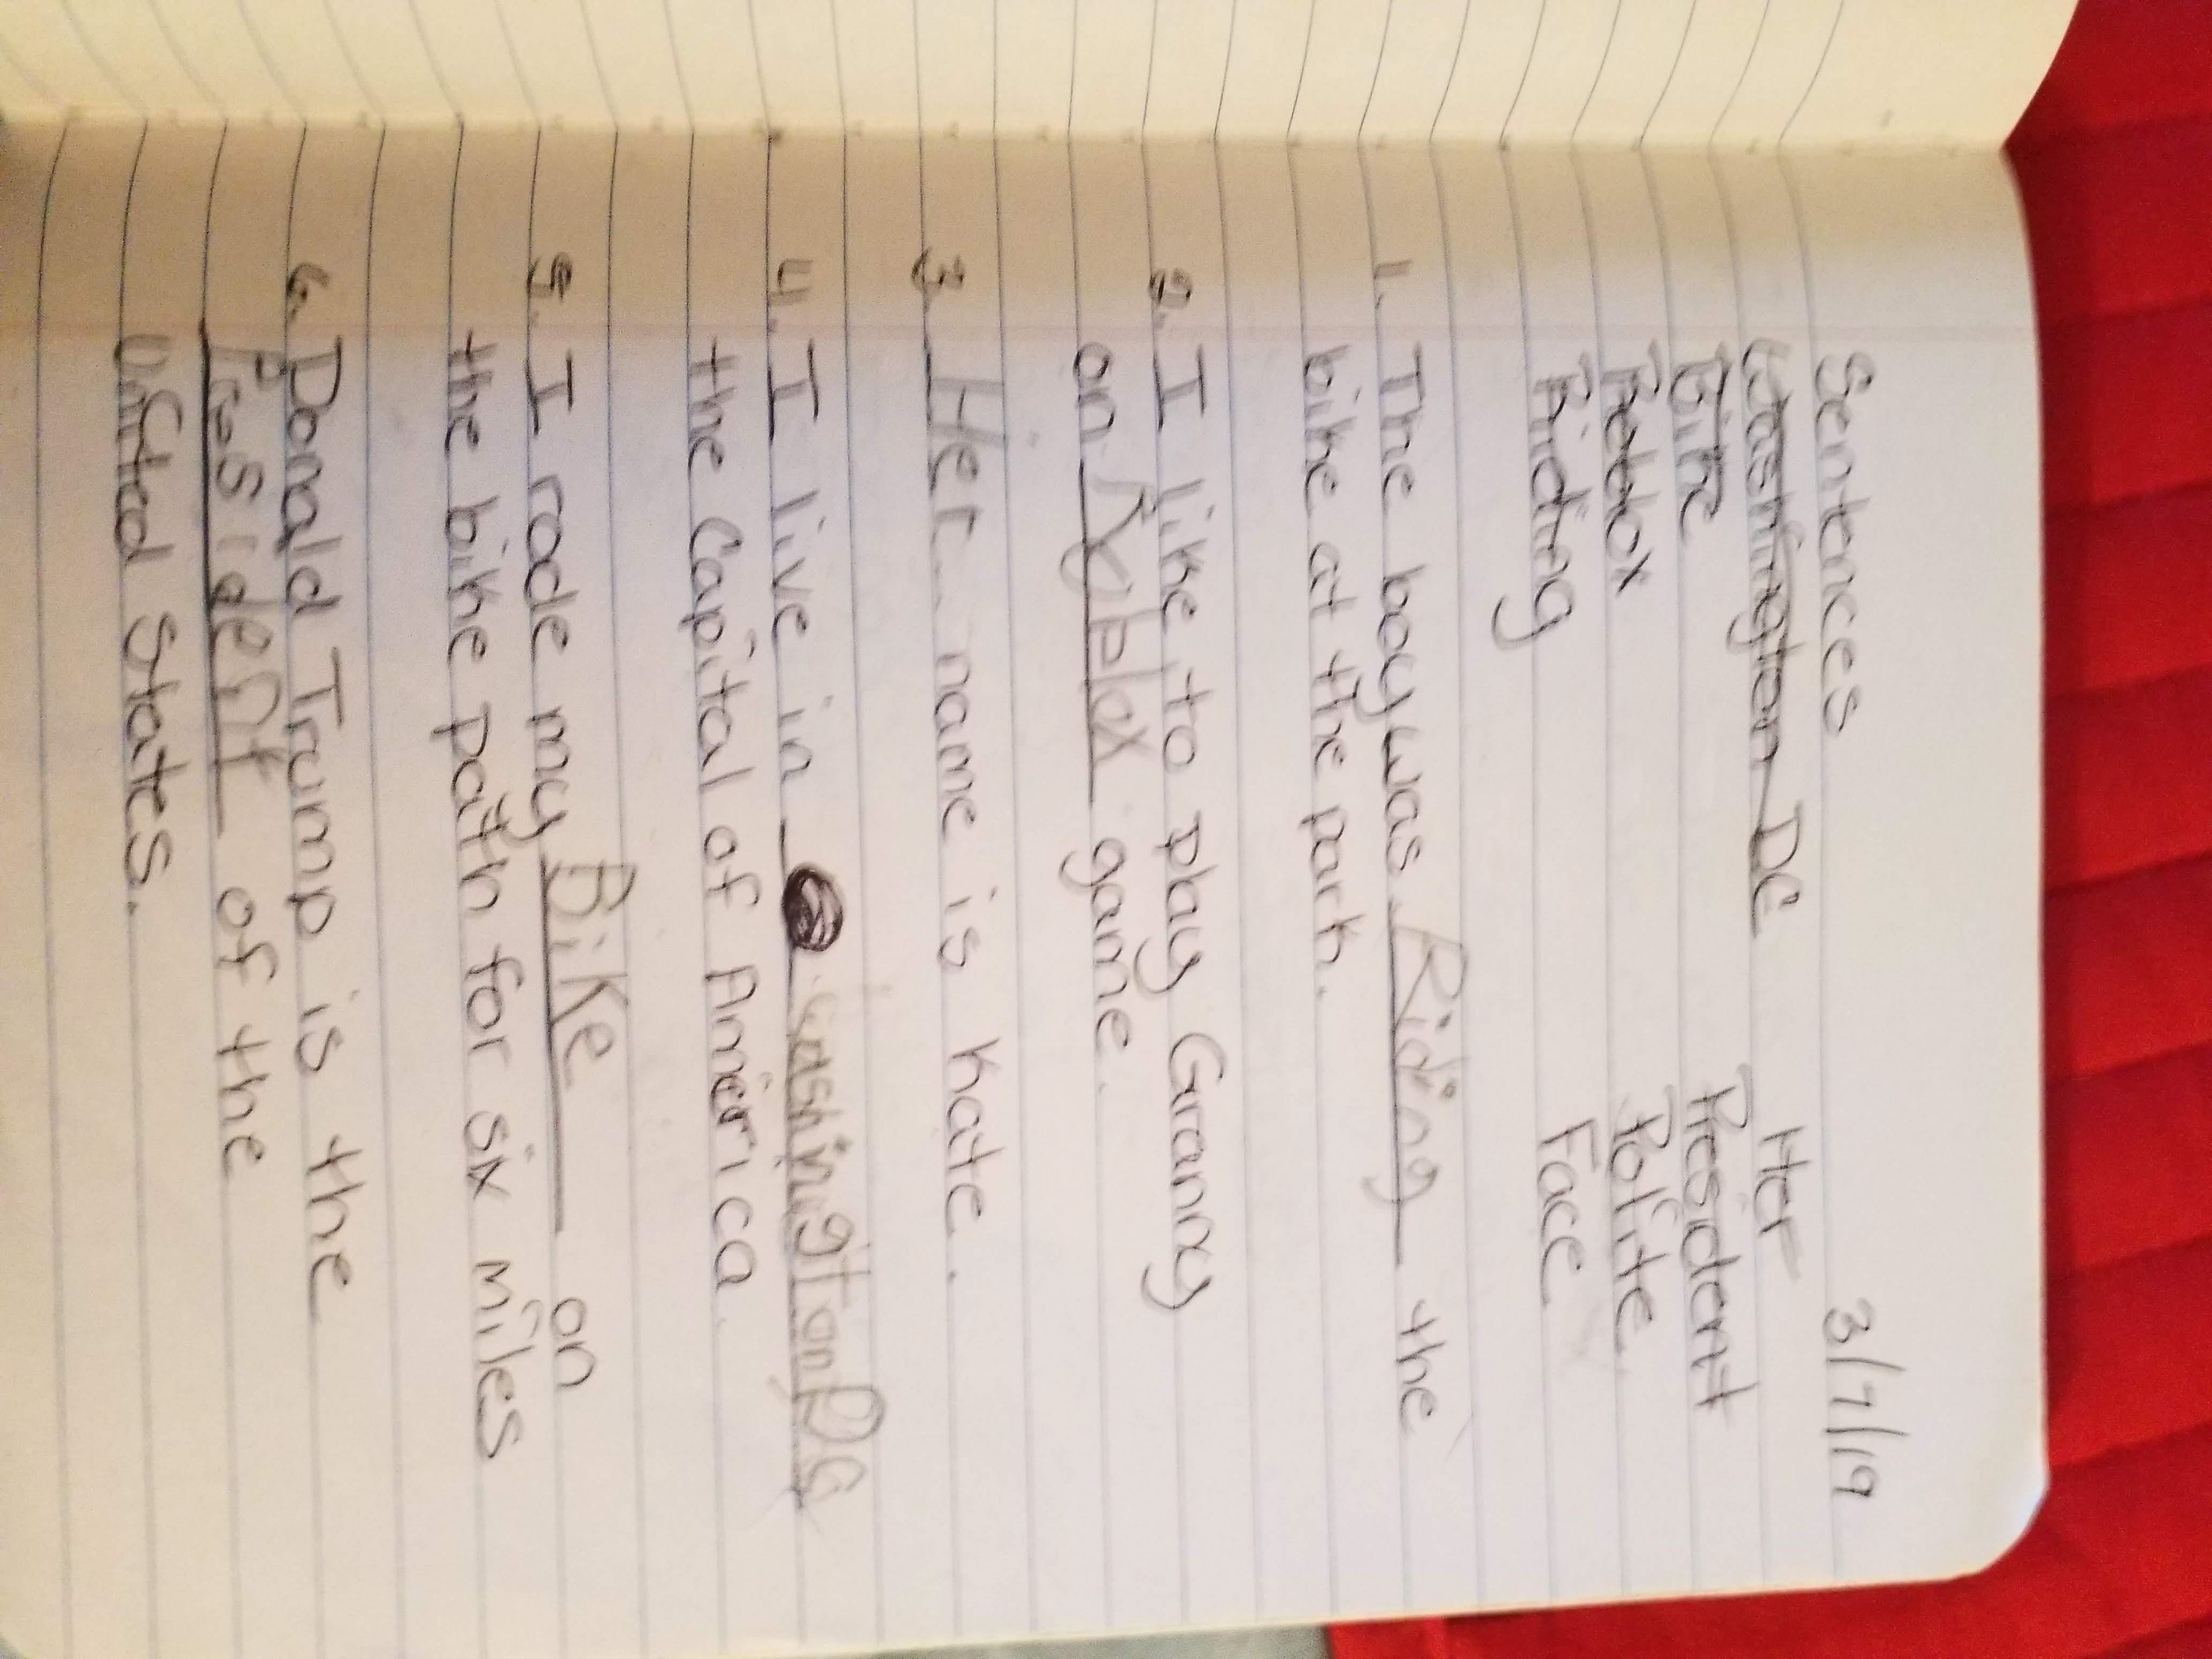 Sentences 3/7/19
Washington DC Her
Bike President
Roblox Polite
Riding Face
1. The boy was Riding the
bike at the park.
2. I like to play Granny
on Roblox game.
3. Her name is Kate.
4. I live in washington DC
the Capital of America
5. I rode my Bike on
the bike path for six miles
6. Donald Trump is the
President of the
United States.